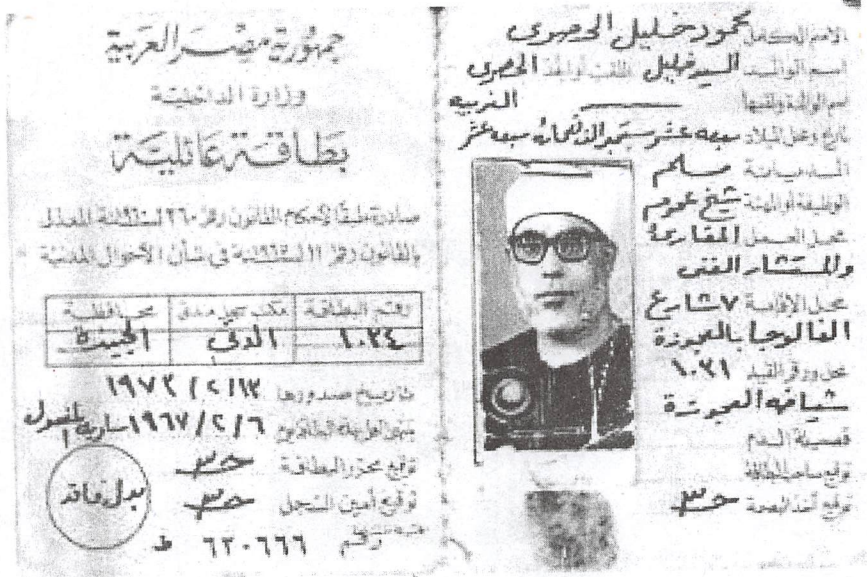 محمود خليل الحصرى
الاسم الكامل
اسم الوالد السيد خليل اللقب أو الجد الحصرى
اسم الوالدة ولقبها
الغربية
تاريخ ومحل الميلاد سبعه عشر سبتمبر سبعه عشر
الديانة مسلم
الوظيفة أو المهنة شيخ عموم
محل العمل المقارئ
والمستشار الفنى
محل الإقامة ٧ شارع
الفالوجا بالعجوزة
محل ورقم القيد ١٠٣١
شياخه العجوزة
فصيلة الدم
توقيع صاحب البطاقة
توقيع آخذ البصمة
جمهورية مصر العربية
وزارة الداخلية
بطاقة عائلية
صادرة طبقا لأحكام القانون رقم ٢٦٠ لسنة ١٩٦٠ المعدل
بالقانون رقم ١١ لسنة ١٩٦٣ في شأن الأحوال المدنية
رقم البطاقة مكتب سجل مدنى محافظة
١٠٣٤ الدقي الجيزة
تاريخ صدورها ١٩٧٢/٢/١٣
١٩٦٧/٢/٦
توقيع محرر البطاقة
توقيع أمين السجل
بدل فاقد
رقم ٦٢٠٦٦٦ ط